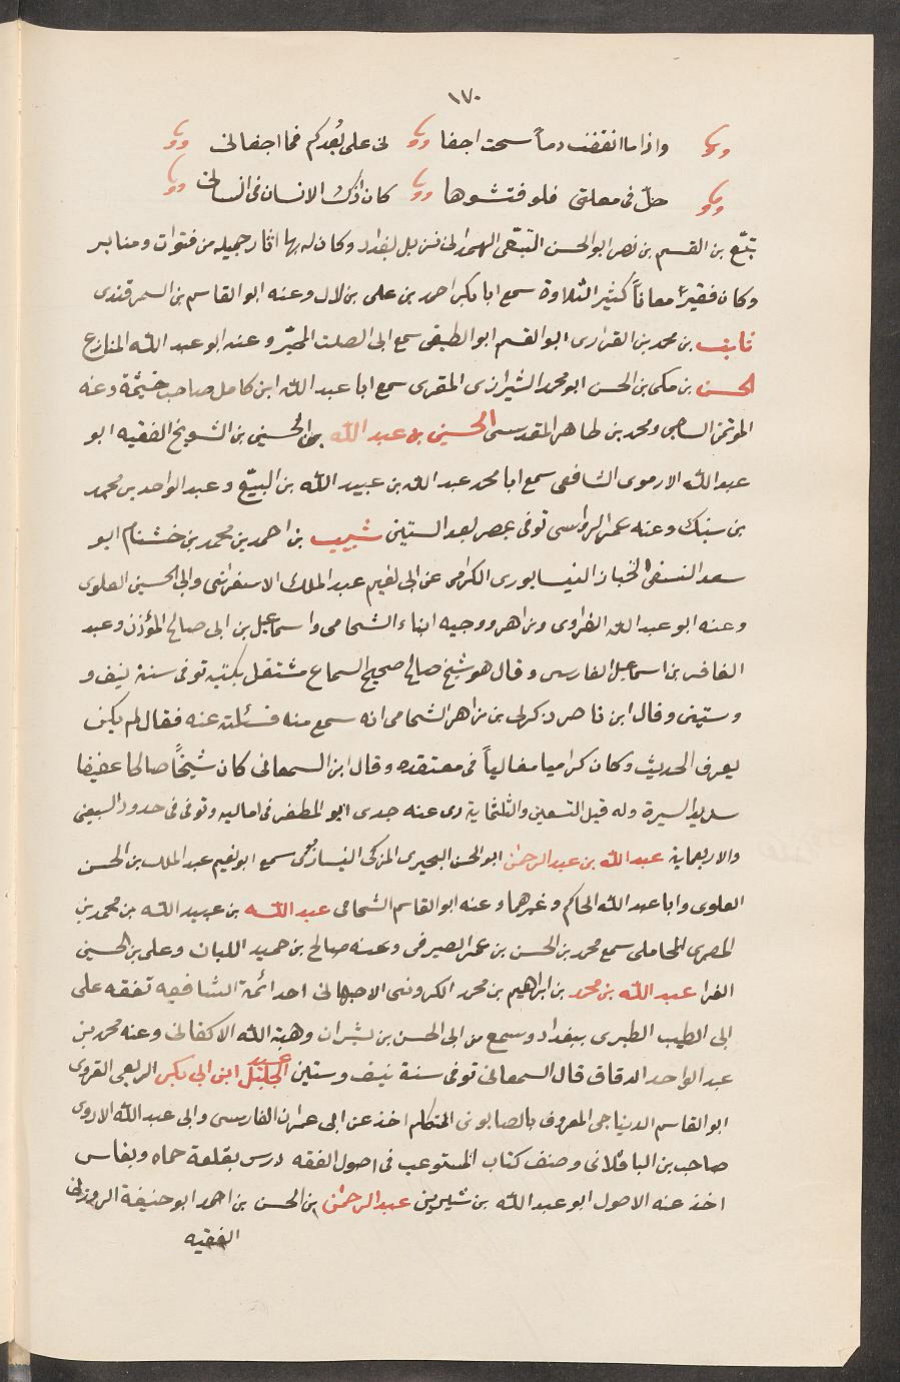 ١٧٠
واذا ما انقضت دماً سحت اجفا نى على بُعدكم فما اجفانى
حلّ فى مهلتى فلو فتشوها كان ذاك الانسان فى انسانى
تبّع بن القسم بن نصر ابو الحسن التبّعى الهمدانى نزيل بغداد وكان له بها اثار جميله من فتوات ومنابر
وكان فقيراً معاناً كثير التلاوة سمع ابا بكر احمد بن على بن لال وعنه ابو القاسم بن السمرقندى
ثابت بن محمد بن القزارى ابو القسم ابو الطبقى سمع ابى الصلت المجبّر وعنه ابو عبد الله المنازع
الحسن بن مكى بن الحسن ابو محمد الشيرازى المقرى سمع ابا عبد الله ابن كامل صاحب خيثمة وعنه
الموتمن الساجى ومحمد بن طاهر المقدسى الحسين بن عبد الله بن الحسين بن الشويخ الفقيه ابو
عبد الله الارموى الشافعى سمع ابا محمد عبد الله بن عبيد الله بن البيّع وعبد الواحد بن محمد
بن سبنك وعنه عمر الرواسى توفى بمصر بعد الستين شبيب بن احمد بن محمد بن خشنام ابو
سعد النسفى الخباز النيسابورى الكرامى عن ابى نعيم عبد الملك الاسفرائنى وابى الحسين العلوى
وعنه ابو عبد الله الفراوى وزاهر ووجيه ابناء الشحامى واسماعيل بن ابى صالح المؤذن وعبد
الغافر بن اسماعيل الفارسى وقال هو شيخ صالح صحيح السماع مشتغل بكتبه توفى سنة نيف و
وستين وقال ابن ناصر ذكر لى بن زاهر الشحامى انه سمع منه فسئلته عنه فقال لم يكن
يعرف الحديث وكان كراميا مغالياً فى معتقده وقال ابن السمعانى كان شيخًا صالحا عفيفا
سديد السيرة وله قبل التسعين والثلثماية روى عنه جدى ابو المظفر فى اماليه وتوفى فى حدود السبعين
والاربعماية عبد الله بن عبد الرحمن ابو الحسن البحيرى المزكى النيسابورى سمع ابو نعيم عبد الملك بن الحسن
العلوى وابا عبد الله الحاكم وغيرهما وعنه ابو القاسم الشحامى عبد الله بن عبيد الله بن محمد بن
المصرى المحاملى سمع محمد بن الحسن بن عمر الصيرفى وعنه صالح بن حميد اللبان وعلى بن الحسين
الفرا عبد الله بن محمد بن ابراهيم بن محمد الكرونى الاصبهانى احد ائمة الشافعيه تفقه على
ابى الطيب الطبرى ببغداد وسمع من ابى الحسن بن بشران وهبة الله الاكفانى وعنه محمد بن
عبد الواحد الدقاق قال السمعانى توفى سنة نيف وستين عبد الجليل ابن ابى بكر الربعى القروى
ابو القاسم الديناجى المعروف بالصابونى المتكلم اخذ عن ابى عمران الفارسى وابى عبد الله الازدى
صاحب بن الباقلانى وصنف كتاب المستوعب فى اصول الفقه درس بقلعة حماه وبفاس
اخذ عنه الاصول ابو عبد الله بن شيرين عبد الرحمن بن الحسن بن احمد ابو حنيفة الزوزنى
الفقيه